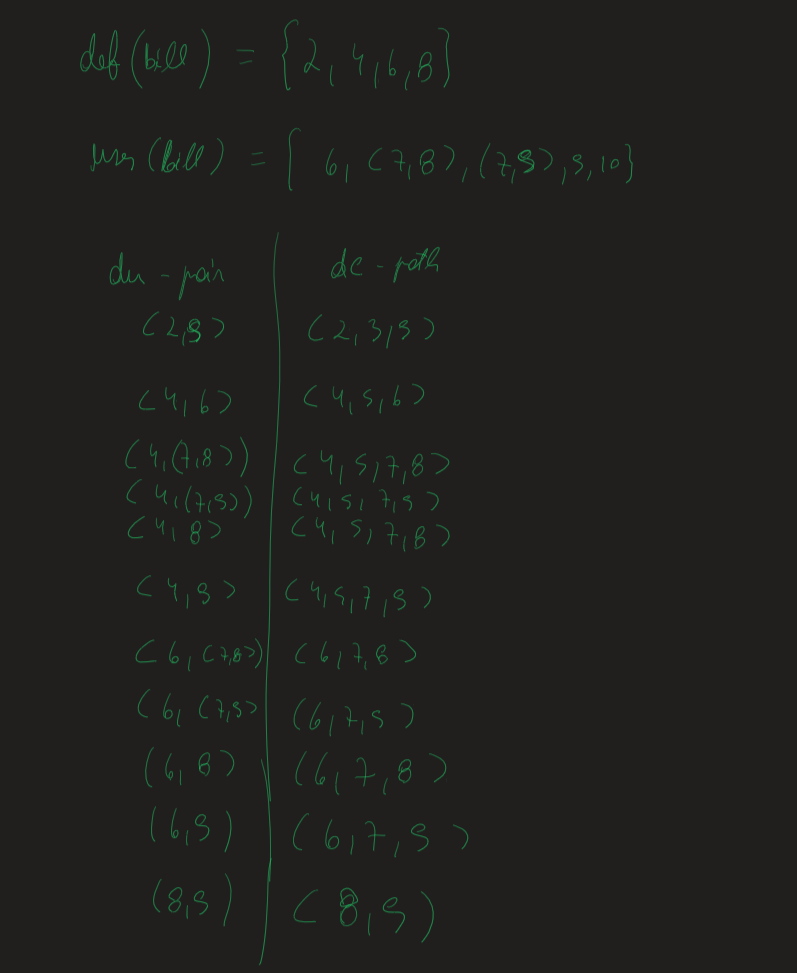 def (bill) = {2, 4, 6, 8}
uses (bill) = { 6, (7,8), (7,9), 9, 10}
du - pair dc - path
(2,9) (2,3,9)
(4,6) (4,5,6)
(4,(7,8)) (4,5,7,8)
(4,(7,9)) (4,5,7,9)
(4,8) (4,5,7,8)
(4,9) (4,5,7,9)
(6,(7,8)) (6,7,8)
(6,(7,9) (6,7,9)
(6,8) (6,7,8)
(6,9) (6,7,9)
(8,9) (8,9)